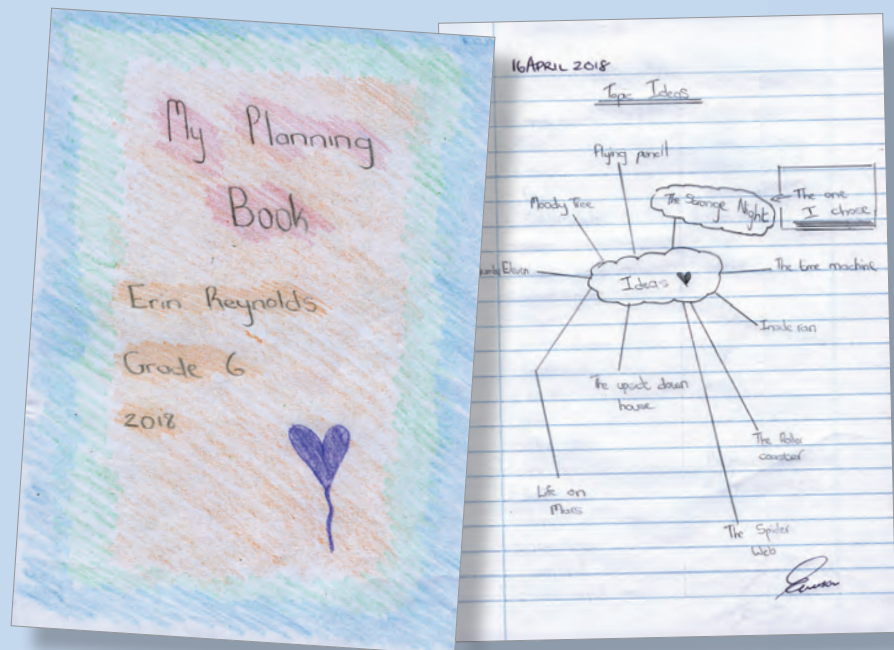 My Planning
Book
Erin Reynolds
Grade 6
2018
16 APRIL 2018
Topic Ideas
Flying pencil
Moody Tree
The Strange Night
The one
I chose
Eleven
Ideas
The time machine
Inside
The upside down
house
The Roller
coaster
Life on
Mars
The Spider
Web